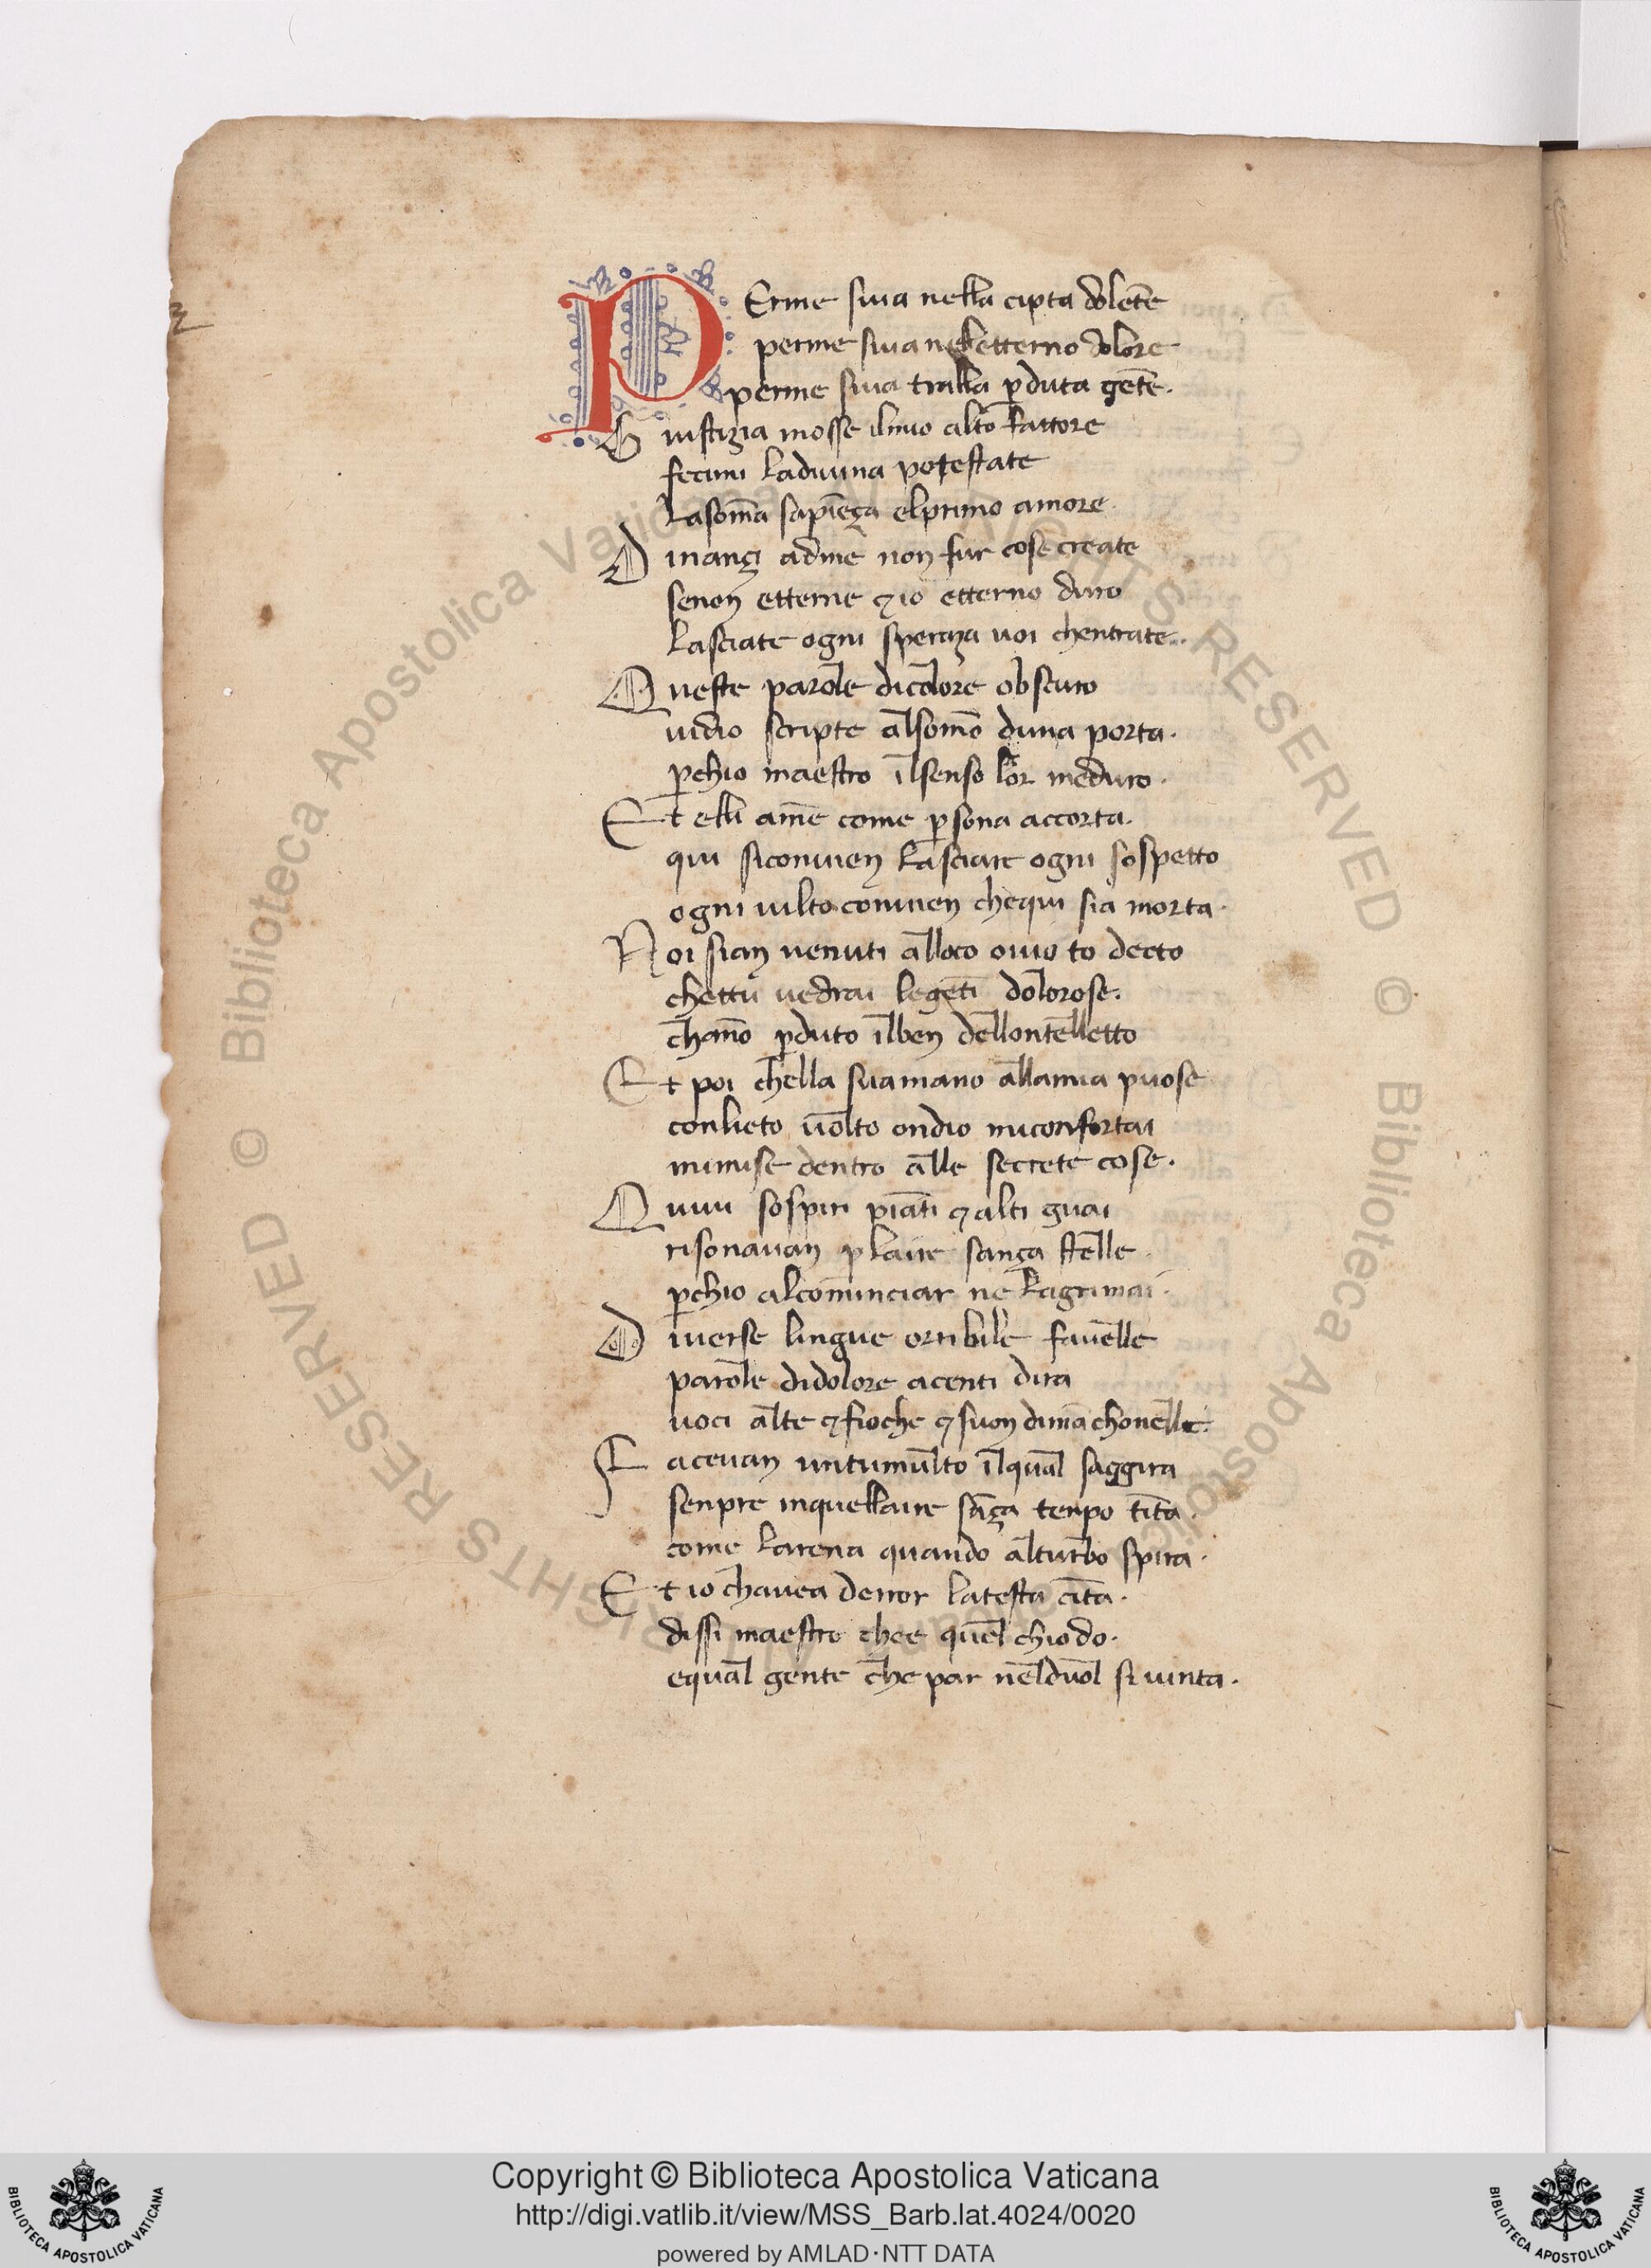 PErme siua nella cipta dolēte
perme siua nelletterno dolore
perme siua tralla ꝑduta gētē.
Giustizia mosse ilmio alto fattore
fecimi ladiuina potestate
lasom̄a sapiēza elprimo amore.
Dinanzi adme non fur cose create
senon etterne ⁊ io etterno duro
lasciate ogni speranza uoi chentrate.
Queste parole dicolore obscuro
uidio scripte alsom̄o duna porta.
ꝑchio maestro ilsenso lor meduro.
Et elli am̄e come ꝑsona accorta.
qui siconuien lasciare ogni sospetto
ogni uilta conuien chequi sia morta.
Noi sian uenuti alloco ouio to decto
chettu uedrai legēti dolorose.
chan̄o ꝑduto ilben dellontelletto
Et poi chella suamano allamia puose
conlieto uolto ondio miconfortai
mimise dentro alle secrete cose.
Quiui sospiri piāti ⁊ alti guai
risonauan ꝑ laire sanza stelle.
ꝑchio alcominciar ne lagrimai.
Diuerse lingue orribile fauelle
parole didolore acenti dira
uoci alte ⁊ fioche ⁊ suon dimā chonelle.
Faceuan untumulto ilqual saggira
senpre inquellaire sāza tenpo tīta.
come larena quando alturbo spira.
Et io chauea derror latesta cīta.
dissi maestro chee quel chio do.
equal gente che par nelduol si uinta.
© Biblioteca Apostolica Vaticana
ALL RIGHTS RESERVED
© Biblioteca Apostolica Vaticana
ALL RIGHTS RESERVED
Copyright © Biblioteca Apostolica Vaticana
http://digi.vatlib.it/view/MSS_Barb.lat.4024/0020
powered by AMLAD·NTT DATA
BIBLIOTECA APOSTOLICA VATICANA
BIBLIOTECA APOSTOLICA VATICANA